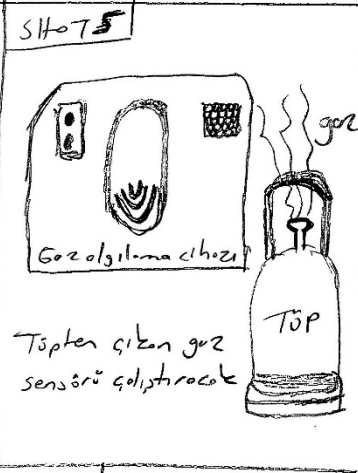 SHOT 5
gaz
Gaz algılama cihazı
TÜP
Tüpten çıkan gaz
sensörü çalıştıracak